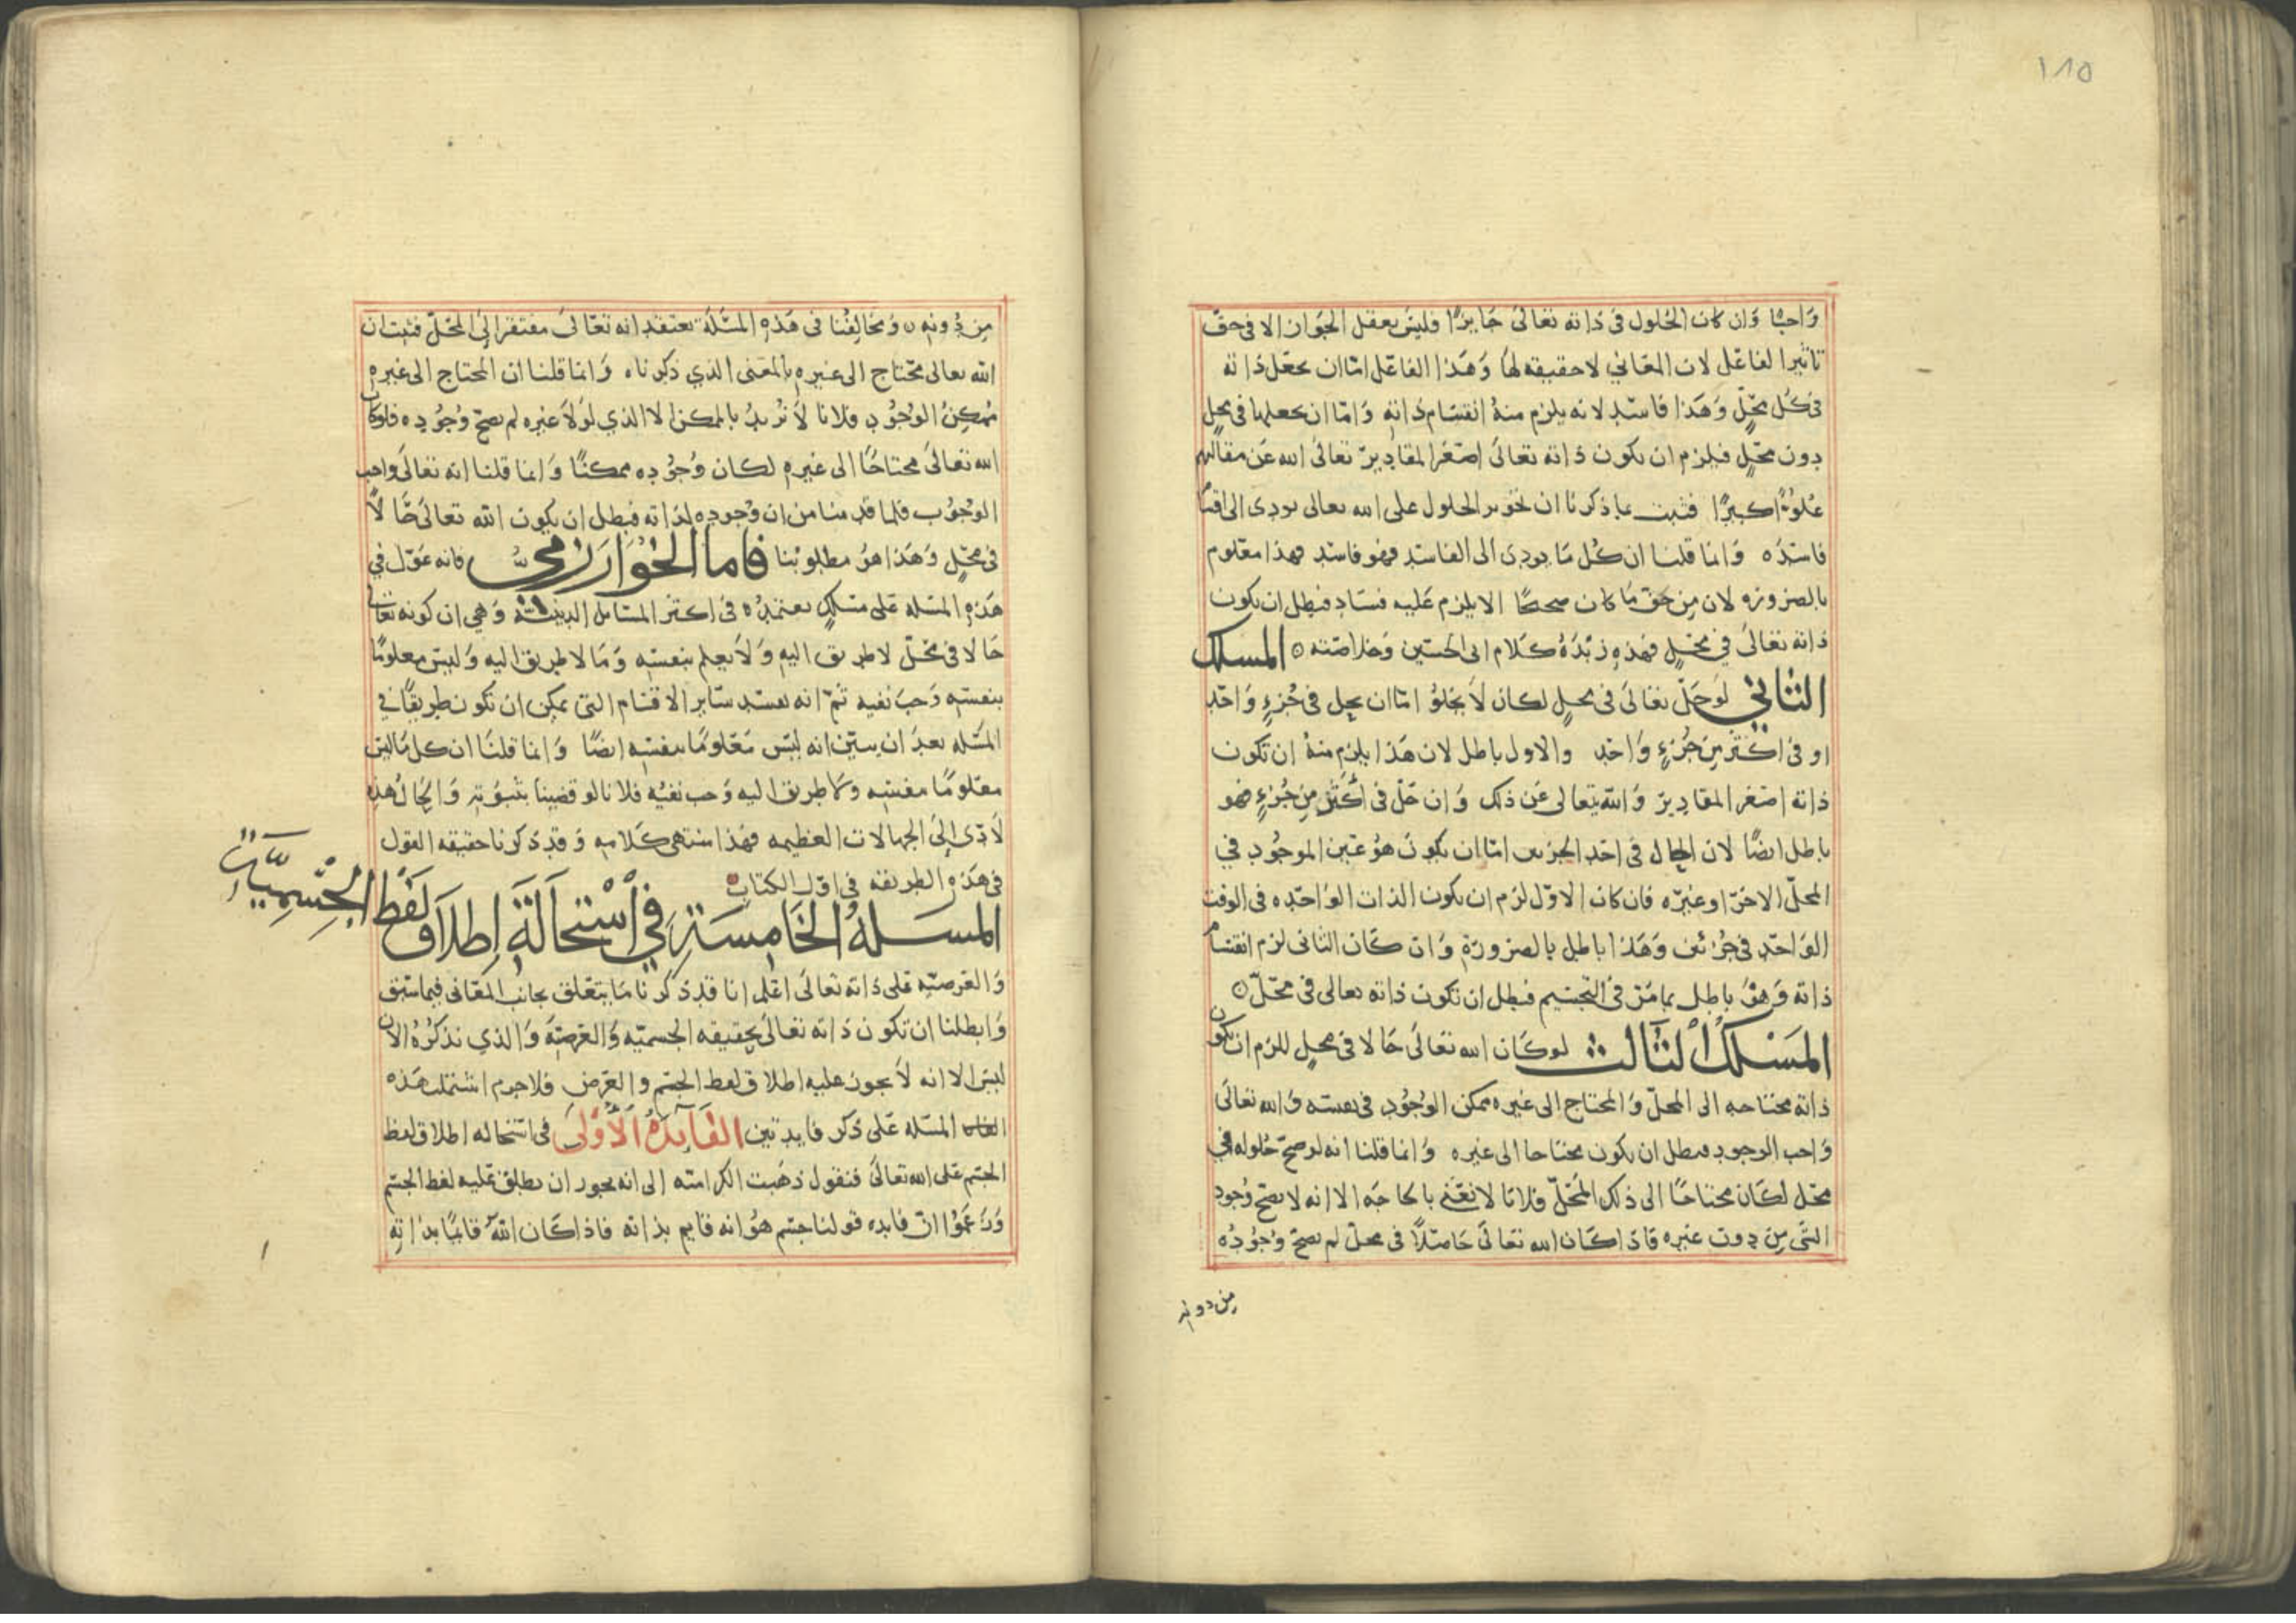 ١٨٥
واجبا وان كان الحلول فى ذاته تعالى جايزا فليس يعقل الجواز الا فى حق
تاثير الفاعل لان المعاني لا حقيقة لها وهذا الفاعل اما ان يجعل ذاته
فى كل محل وهذا فاسد لانه يلزم منه انقسام ذاته واما ان يجعلها فى محل
دون محل فيلزم ان يكون ذاته تعالى اصغر المقادير تعالى الله عن مقالتهم
علوا كبيرا فثبت بما ذكرنا ان تجويز الحلول على الله تعالى يودى الى اقسام
فاسده وانما قلنا ان كل ما يودى الى الفاسد فهو فاسد فهذا معلوم
بالضروره لان من حق ما كان صحيحا الا يلزم عليه فساد فبطل ان يكون
ذاته تعالى في محل فهذه زبدة كلام ابى الحسين وخلاصته المسلك
الثاني لو حل تعالى فى محل لكان لا يخلو اما ان يحل فى جزء واحد
او فى اكثر من جزء واحد والاول باطل لان هذا يلزم منه ان تكون
ذاته اصغر المقادير والله يتعالى عن ذلك وان حل فى اكثر من جزء فهو
باطل ايضا لان الحال فى احد الجزءين اما ان يكون هو عين الموجود في
المحل الاخر او غيره فان كان الاول لزم ان يكون الذات الواحده فى الوقت
الواحد فى جزئين وهذا باطل بالضرورة وان كان الثانى لزم انقسام
ذاته وهو باطل بما مر فى التجسيم فبطل ان تكون ذاته تعالى فى محل
المسلك الثالث لو كان الله تعالى حالا فى محل للزم ان تكون
ذاته محتاجه الى المحل والمحتاج الى غيره ممكن الوجود فى نفسه والله تعالى
واجب الوجود فبطل ان يكون محتاجا الى غيره وانما قلنا انه لو صح حلوله في
محل لكان محتاجا الى ذلك المحل فلانا لا نعني بالحاجه الا انه لا يصح وجود
الشى من دون غيره فاذا كان الله تعالى حاصلا فى محل لم يصح وجوده
من دونه
من دونه ومخالفنا فى هذه المسئلة يعتقد انه تعالى مفتقر الى المحل فثبت ان
الله تعالى محتاج الى غيره بالمعنى الذي ذكرناه وانما قلنا ان المحتاج الى غيره
ممكن الوجود فلانا لا نريد بالممكن الا الذي لولا غيره لم يصح وجوده فلو كان
الله تعالى محتاجا الى غيره لكان وجوده ممكنا وانما قلنا انه تعالى واجب
الوجوب فلما قدمنا من ان وجوده لذاته فبطل ان يكون الله تعالى حالا
فى محل وهذا هو مطلوبنا فاما الخوارزمي فانه عول في
هذه المسله على مسلك يعتمده فى اكثر المسايل الدينية وهي ان كونه تعالى
حالا فى محل لا طريق اليه ولا يعلم بنفسه وما لا طريق اليه وليس معلوما
بنفسه وجب نفيه ثم انه يفسد ساير الاقسام التى يمكن ان تكون طريقا في
المسله بعد ان يبين انه ليس معلوما بنفسه ايضا وانما قلنا ان كل ما ليس
معلوما بنفسه ولا طريق اليه وجب نفيه فلانا لو قضينا بثبوته والحال هذه
لادى الى الجهالات العظيمه فهذا منتهى كلامه وقد ذكرنا حقيقة القول
فى هذه الطريقه فى اول الكتاب
المسلة الخامسة في استحالة اطلاق لفظ الجسمية
والعرضيه على ذاته تعالى اعلم انا قد ذكرنا ما يتعلق بجانب المعانى فيما سبق
وابطلنا ان تكون ذاته تعالى بحقيقة الجسميه والعرضية والذي نذكره الان
ليس الا انه لا يجوز عليه اطلاق لفظ الجسم والعرض فلا جرم اشتملت هذه
المسله على ذكر فايدتين الفايدة الاولى فى استحاله اطلاق لفظ
الجسم على الله تعالى فنقول ذهبت الكراميه الى انه يجوز ان يطلق عليه لفظ الجسم
وزعموا ان فايده قولنا جسم هو انه قايم بذاته فاذا كان الله قايما بذاته